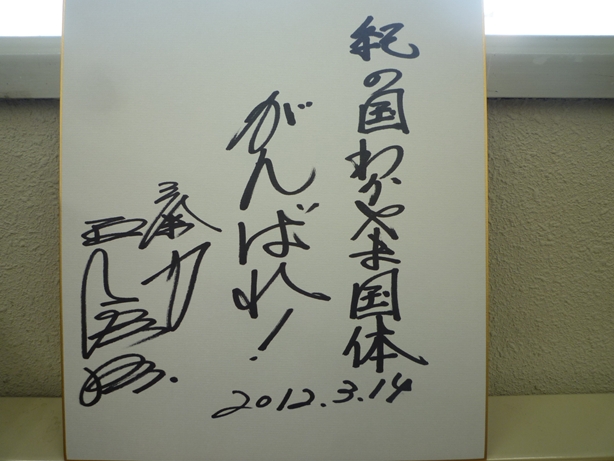 紀の国わかやま国体
がんばれ!
2012.3.14